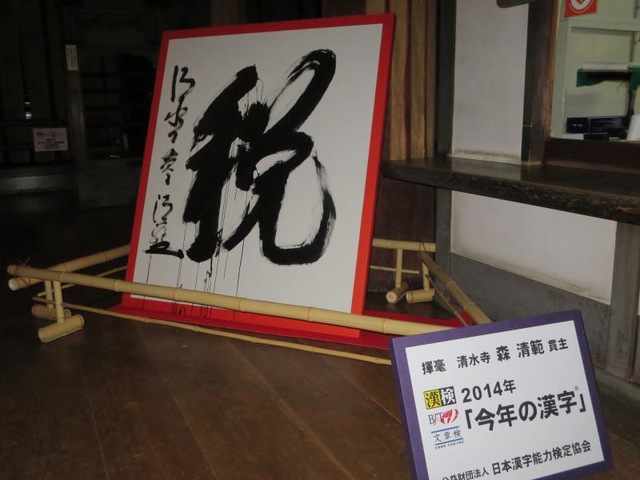 税
揮毫 清水寺 森 清範 貫主
漢検
2014年
「今年の漢字」®
文章検
公益財団法人 日本漢字能力検定協会